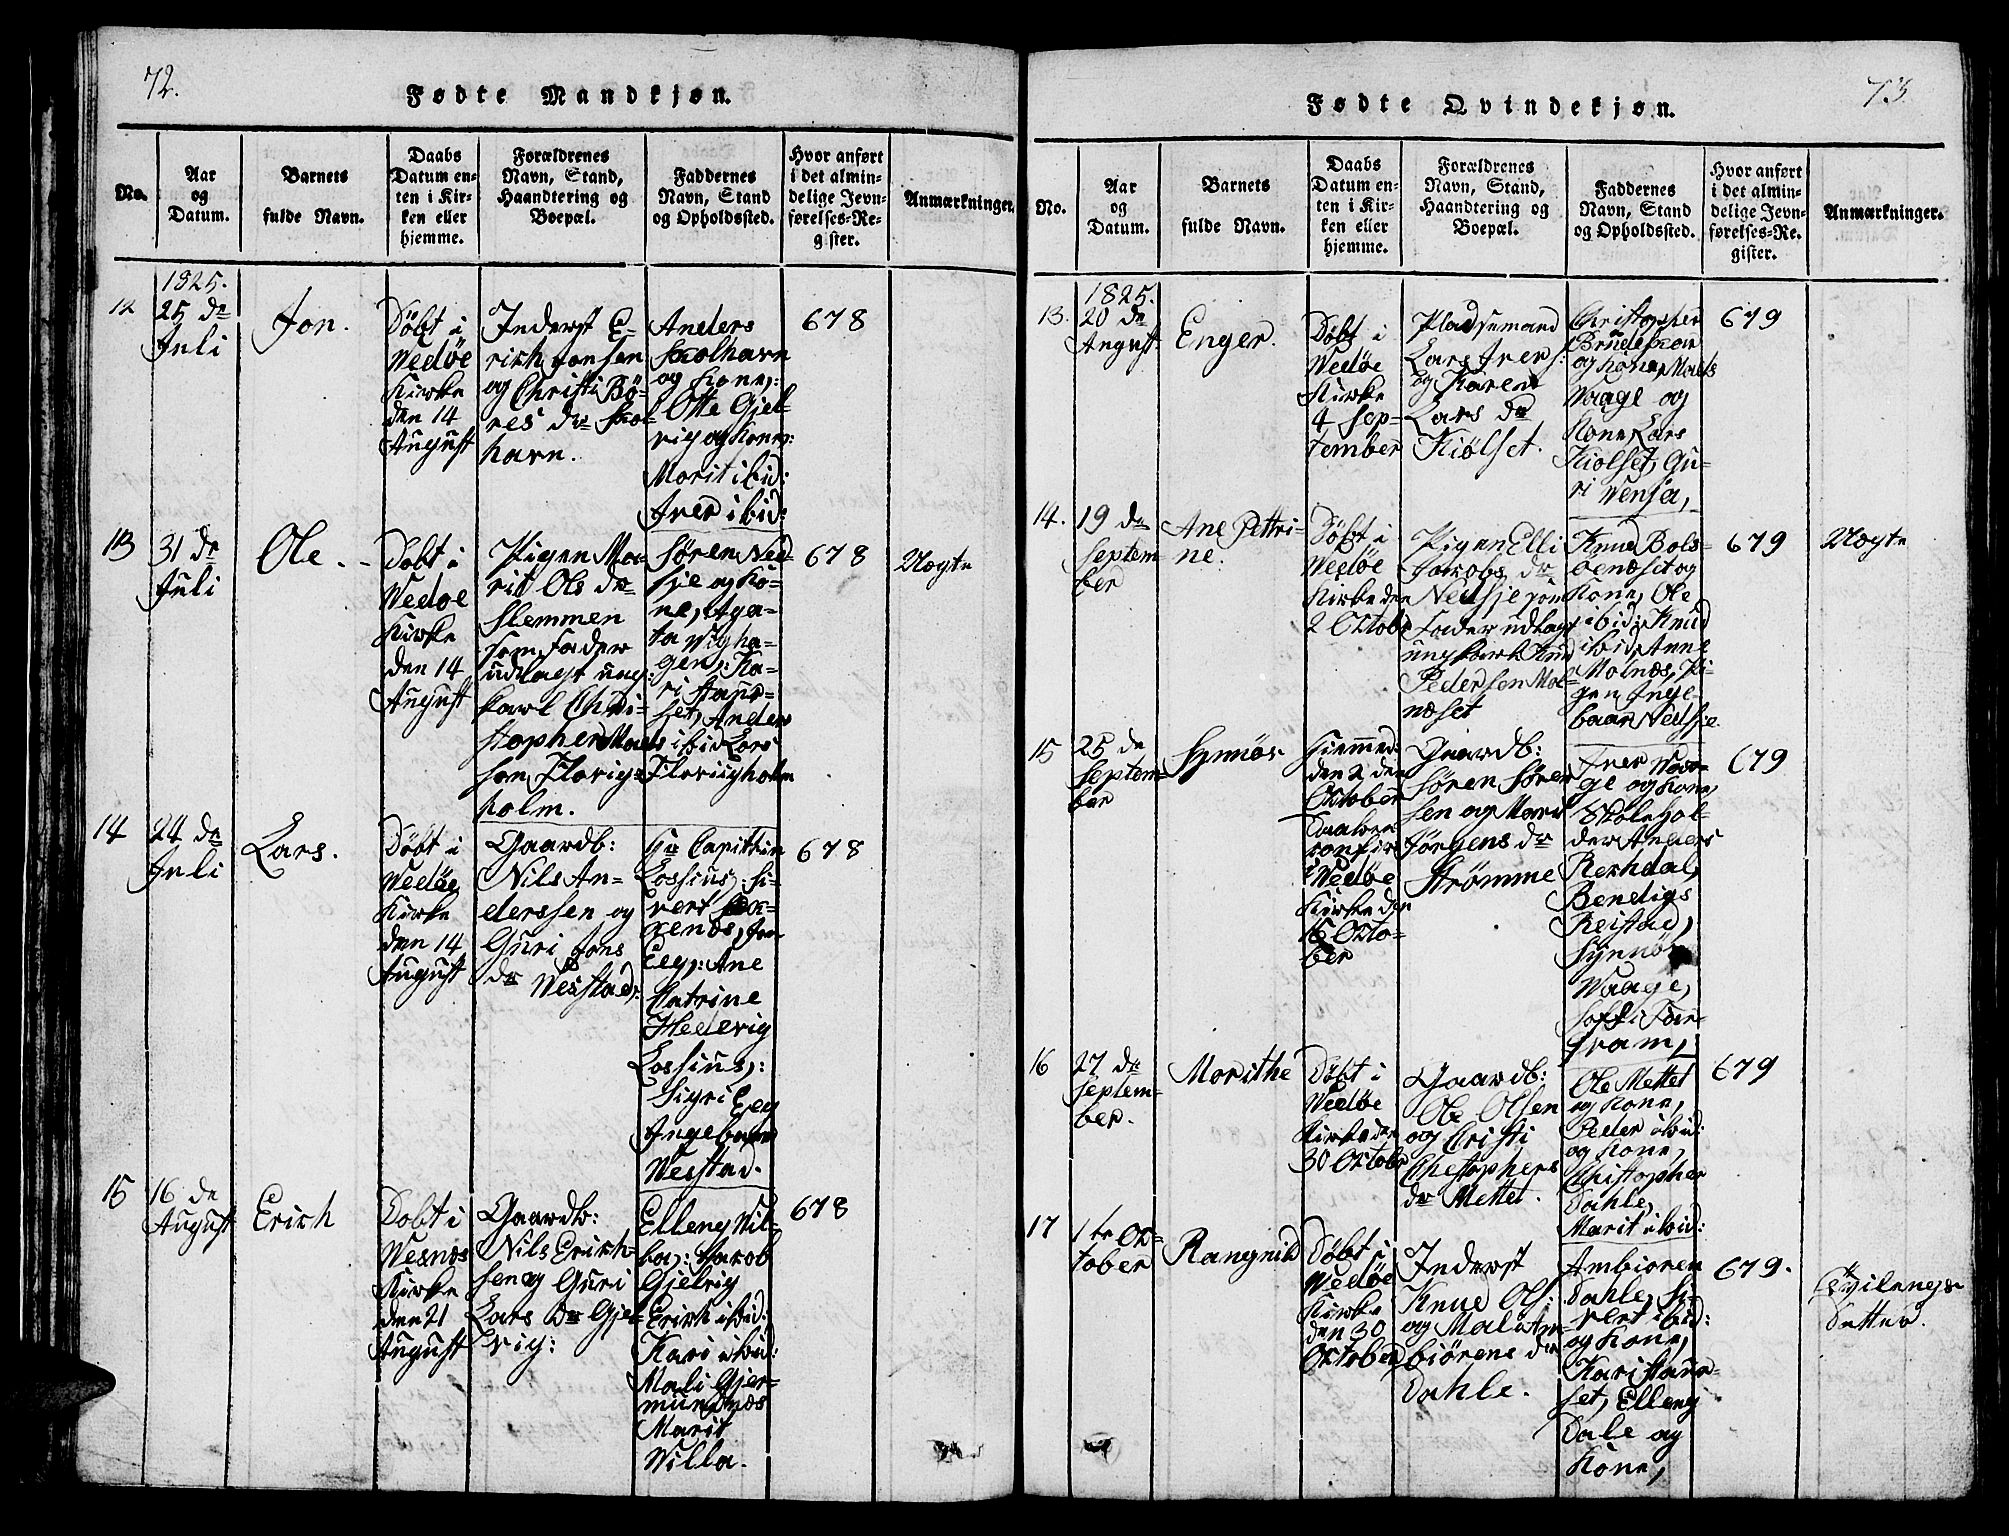 72.
Fødte Mandkjøn.
No.
Aar
og
Datum.
Barnets
fulde Navn.
Daabs
Datum en-
ten i Kir-
ken eller
hjemme.
Forældrenes
Navn, Stand,
Haandtering og
Boepæl.
Faddernes
Navn, Stand
og Opholdssted.
Hvor anført
i det almin-
delige Jevn-
førelses-Re-
gister.
Anmærkninger.
1825.
12
25 de
Juli
Jon.
Döbt i
Wedöe
Kirke
den 14
August
Inderst E-
rich Jonsen
og Christi Bö-
res dr Skol-
havn.
Anders
Skolhavn
og Kone,:
Otte Gjel-
vig og Kone:
Morit ibid:
Iver ibid:
678
13
31 de
Juli
Ole.
Döbt i
Wedöe
Kirke
den 14
August
Pigen Mo-
rit Ols dr
Slemmen
som fader
udlagt ung-
karl Chri-
stopher Mads
sen Florigs-
holm.
Sören Ned-
sje og Ko-
ne, Aga-
ta Wigha-
gen,: Ka-
ri Staur-
set, Anders
ibid Lars
Florugholm
678
Uegte
14
24 de
Juli
Lars.
Döbt i
Wedöe
Kirke
den 14
August
Gaardb:
Nils An-
derssen og
Guri Jons
dr Wesstad:
Hr Capittin
Lossius,: Si-
vert
Eeg,: Ane
Katrine
Hedevig
Lossius,:
Sigri Eeg
Ingebaar
Westad.
678
15
16 de
August
Erich
Dobt i
Wesnæs
Kirke
den 21
August
Gaardb:
Nils Erich-
sen og Guri
Lars dr Gjel-
vig:
Elleng Wil-
la,: Jacob
Gjelvig
Erich ibid:
Kari ibid:
Mali Gjer-
mundnæs
Marit
Willa.
678
73.
Fødte Qvindekjøn.
No.
Aar
og
Datum.
Barnets
fulde Navn.
Daabs
Datum en-
ten i Kir-
ken eller
hjemme.
Forældrenes
Navn, Stand,
Haandtering og
Boepæl.
Faddernes
Navn, Stand
og Opholdssted.
Hvor anført
i det almin-
delige Jevn-
førelses-Re-
gister.
Anmærkninger.
1825.
13.
20 de
August.
Enger.
Döbt i
Wedöe
Kirke
4 Sep-
tember
Pladsemand
Lars Ivers:
og Karen
Lars dr
Kiölset.
Christopher
Brudeskar
og Kone, Mads
Waage og
Kone, Lars
Kiolset, Gu-
ri Wensja,
679
14.
19 de
Septem-
ber
Ane Pettri-
ne.
Döbt i
Wedöe
Kirke den
2 Octobr
Pigen Elli
Jacobs dr
Nedsje som
Fader udlagt
ungkarl Knud
Pedersen Mol-
næset
Knud Bols-
öenæset og
Kone, Ole
ibid: Knud
ibid, Anne
Molnæs, Pi-
gen Inge-
baar Nedsje
679
Uegte
15
25 de
Septem-
ber
Synnöv
Hiemmed:
den 2 den
October
Daaben
confir:
i Wedöe
Kirke den
16 Octo-
ber
Gaardb:
Sören Sören
sen og Marit
Jörgens dr
Strømme
Iver Waa-
ge og Kone,
Skolehol-
der Anders
Rekdal,
Bendigs
Reistad,
Synnöv
Waage,
Soffi
679
16
27 de
Septem-
ber.
Morithe
Döbt i
Wedöe
Kirke den
30 Octobr
Gaardb:
Ole Olsen
og Cristi
Chistophers
dr Mettet.
Ole Mettet
og Kone,
Peder ibid:
og Kone,
Christopher
Dahle,
Marit ibid:
679
17
1te Oc-
tober
Rangnild
Döbt i
Wedöe
Kirke
den 30
October
Inderst
Knud Ols:
og Malet Am-
biörens dr
Dahle.
Ambioren
Dahle, Si-
vert ibid:
og Kone,
Kari Staur-
set, Elleng
Dale og
Kone,
679.
Tvilengs-
detter.